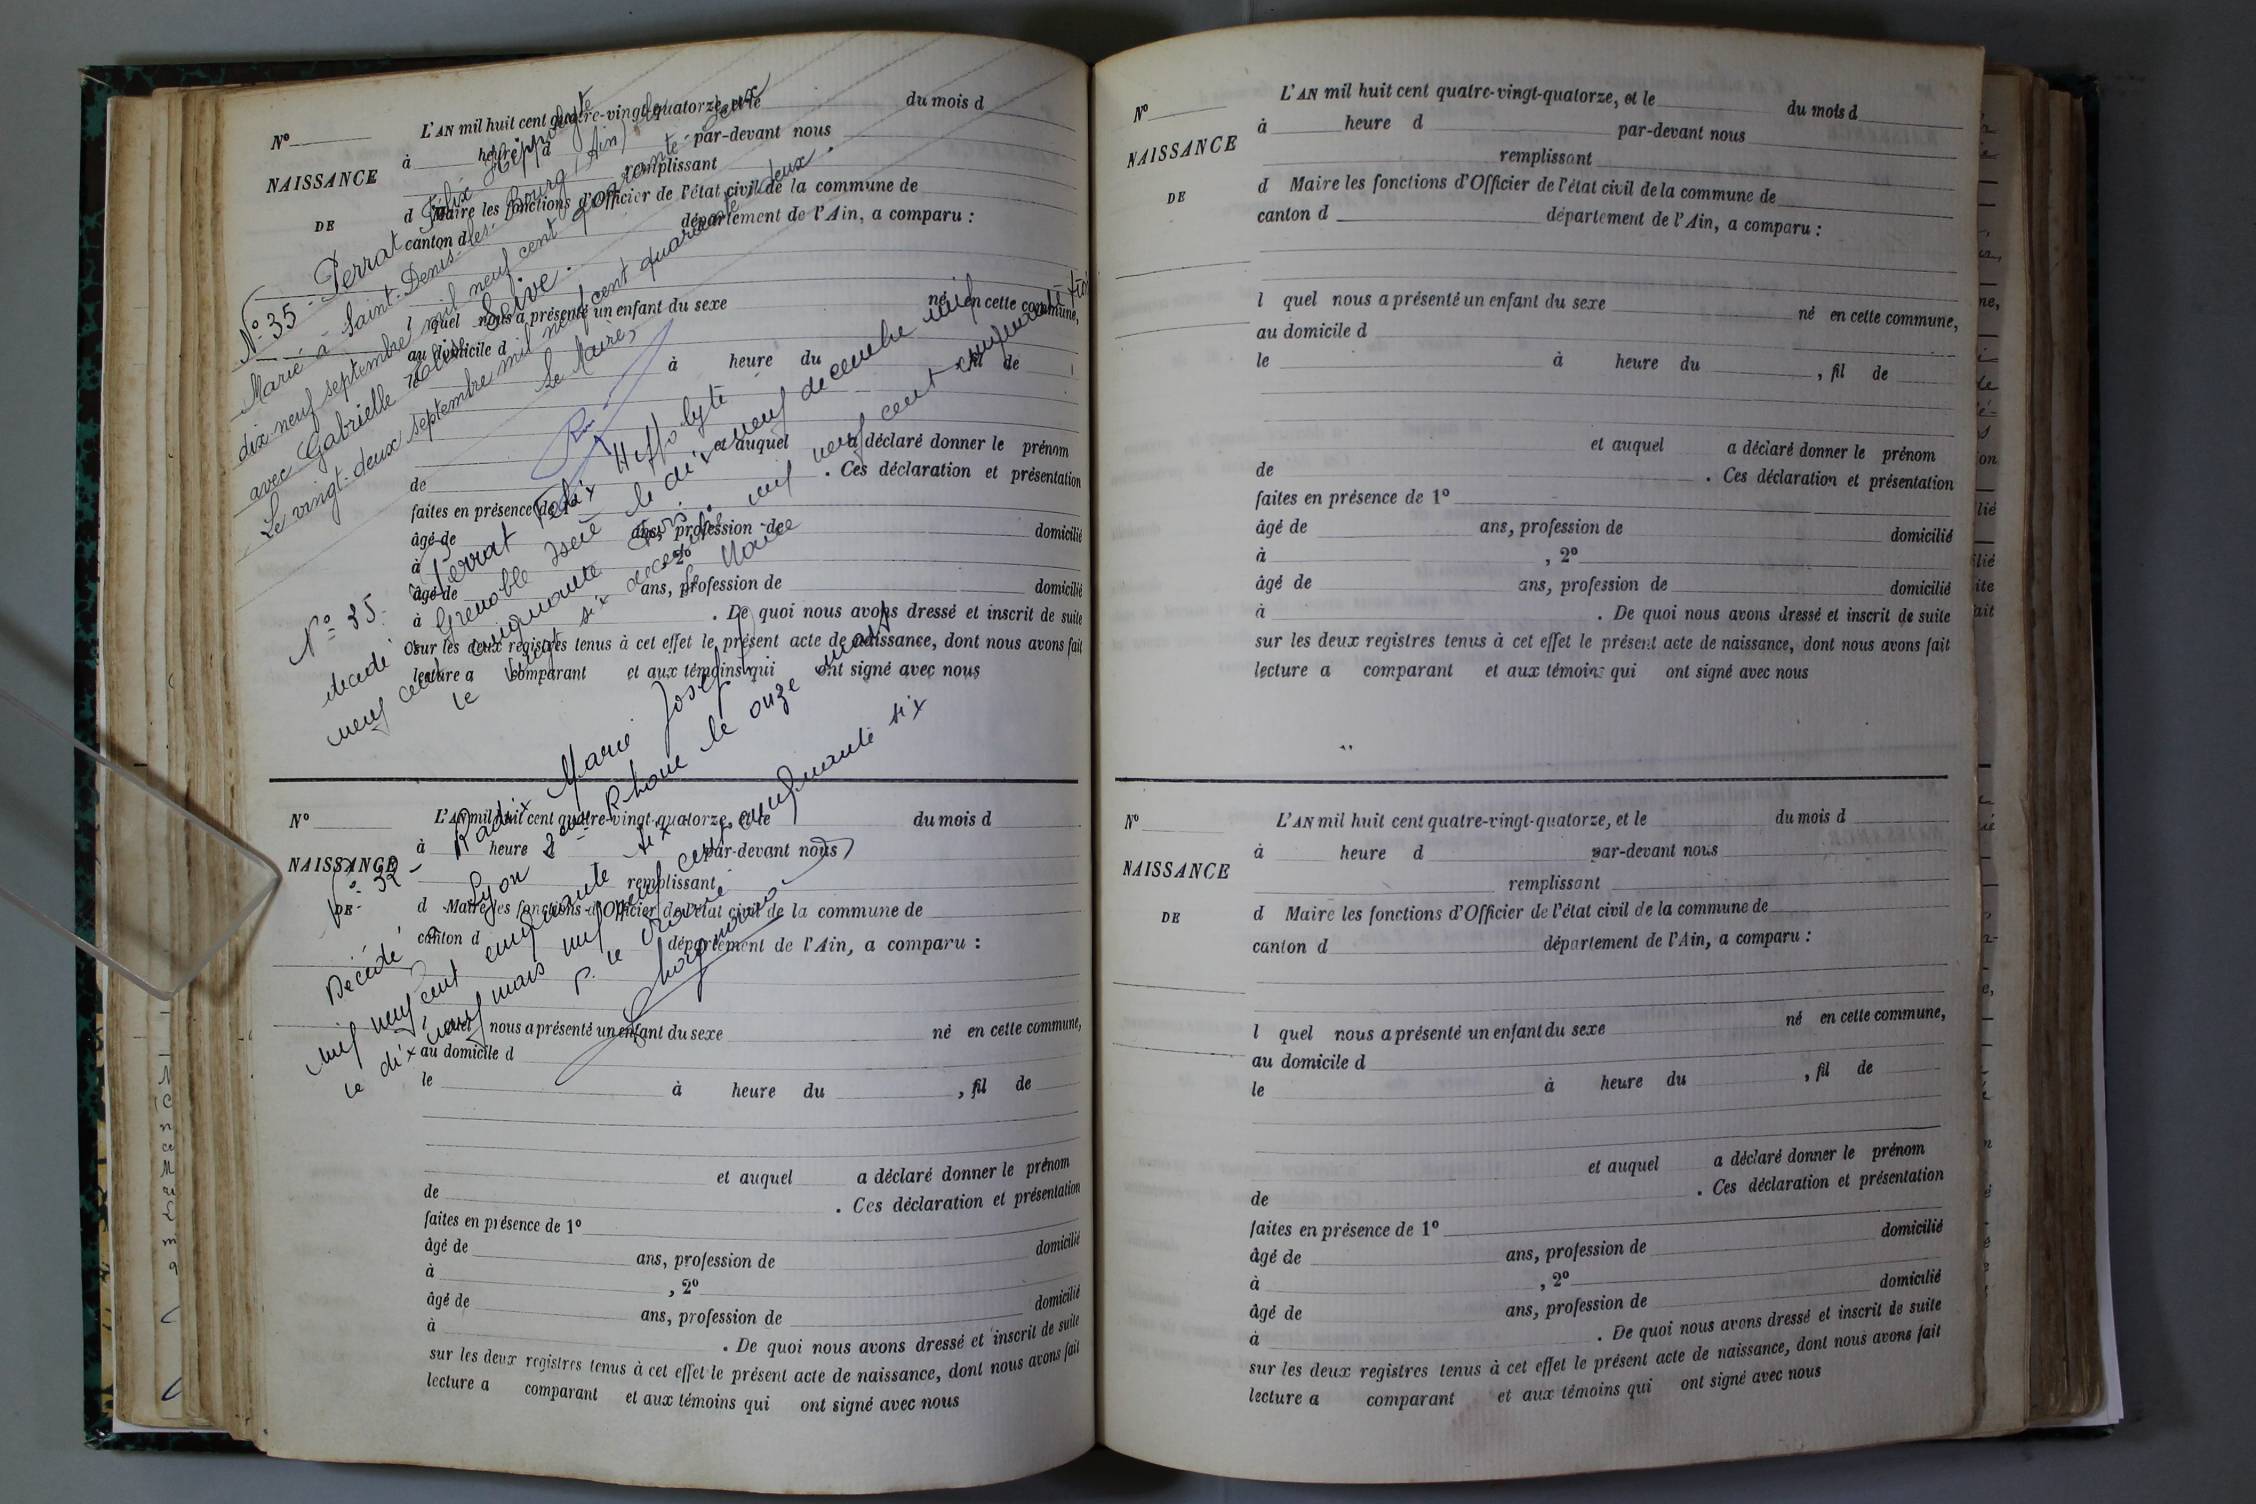 N° du mois d
L'AN mil huit cent quatre-vingt-quatorze, et le
à heure à par-devant nous
NAISSANCE
remplissant
d Maire les fonctions d'Officier de l'état civil de la commune de
DE
canton d département de l'Ain, a comparu :
l quel nous a présenté un enfant du sexe né en cette commune,
au domicile d
à heure du fil de
et auquel a déclaré donner le prénom
de . Ces déclaration et présentation
faites en présence de 1°
âgé de ans, profession de domicilié
à 2°
âgé de ans, profession de domicilié
à . De quoi nous avons dressé et inscrit de suite
sur les deux registres tenus à cet effet le présent acte de naissance, dont nous avons fait
lecture a comparant et aux témoins qui ont signé avec nous
N° 35 - Perrat Félix Hippolyte
Marié à Saint-Denis-les-Bourg (Ain) le
dix-neuf septembre mil neuf cent quarante-deux
avec Gabrielle Selve.
Le vingt-deux septembre mil neuf cent quarante-deux.
Le Maire,
N° 35. Perrat Félix Hippolyte
décédé à Grenoble Isère le dix neuf decembre mil
neuf cent cinquante trois.
le vingt six decembre mil neuf cent cinquante trois
Le Maire
N° L'AN mil huit cent quatre-vingt-quatorze, et le du mois d
à heure par-devant nous
NAISSANCE
remplissant
DE
d Maire les fonctions d'Officier de l'état civil de la commune de
canton d département de l'Ain, a comparu :
quel nous a présenté un enfant du sexe né en cette commune,
au domicile d
le à heure du , fil de
et auquel a déclaré donner le prénom
de . Ces déclaration et présentation
faites en présence de 1°
âgé de ans, profession de domicilié
à , 2°
âgé de ans, profession de domicilié
à . De quoi nous avons dressé et inscrit de suite
sur les deux registres tenus à cet effet le présent acte de naissance, dont nous avons fait
lecture a comparant et aux témoins qui ont signé avec nous
N° 32 - Radix Marie Joseph
Décédé à Lyon 2eme Rhone le onze mars
mil neuf cent cinquante six
le dix neuf mars mil neuf cent cinquante six
P. le Maire
N° L'AN mil huit cent quatre-vingt-quatorze, et le du mois d
à heure d par-devant nous
NAISSANCE
remplissant
DE
d Maire les fonctions d'Officier de l'état civil de la commune de
canton d département de l'Ain, a comparu :
l quel nous a présenté un enfant du sexe né en cette commune,
au domicile d
le à heure du , fil de
et auquel a déclaré donner le prénom
de . Ces déclaration et présentation
faites en présence de 1°
âgé de ans, profession de domicilié
à , 2°
âgé de ans, profession de domicilié
à . De quoi nous avons dressé et inscrit de suite
sur les deux registres tenus à cet effet le présent acte de naissance, dont nous avons fait
lecture a comparant et aux témoins qui ont signé avec nous
N° L'AN mil huit cent quatre-vingt-quatorze, et le du mois d
à heure d par-devant nous
NAISSANCE
remplissant
DE
d Maire les fonctions d'Officier de l'état civil de la commune de
canton d département de l'Ain, a comparu :
l quel nous a présenté un enfant du sexe né en cette commune,
au domicile d
le à heure du , fil de
et auquel a déclaré donner le prénom
de . Ces déclaration et présentation
faites en présence de 1°
âgé de ans, profession de domicilié
à , 2°
âgé de ans, profession de domicilié
à . De quoi nous avons dressé et inscrit de suite
sur les deux registres tenus à cet effet le présent acte de naissance, dont nous avons fait
lecture a comparant et aux témoins qui ont signé avec nous